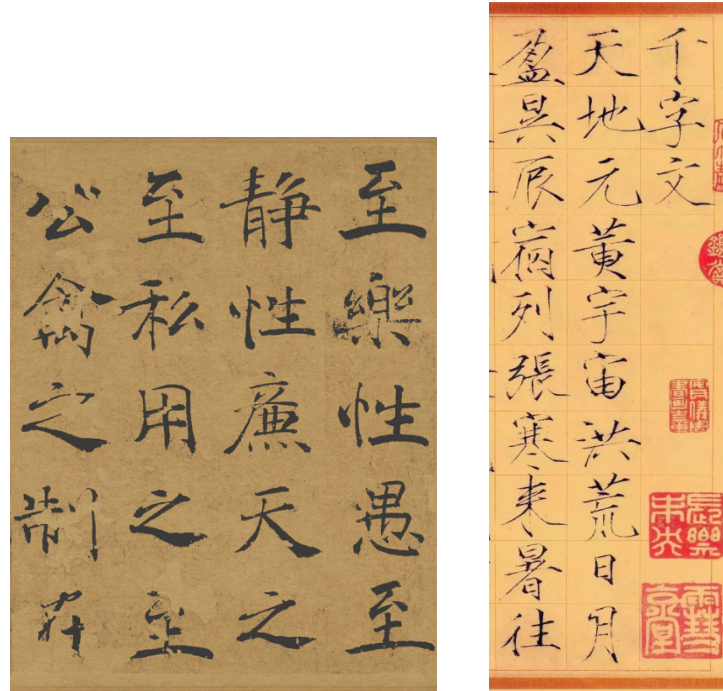 至樂性愚至
靜性廉天之
至私用之至
公禽之制在
千字文
天地元黃宇宙洪荒日月
盈昃辰宿列張寒来暑往
長樂未央